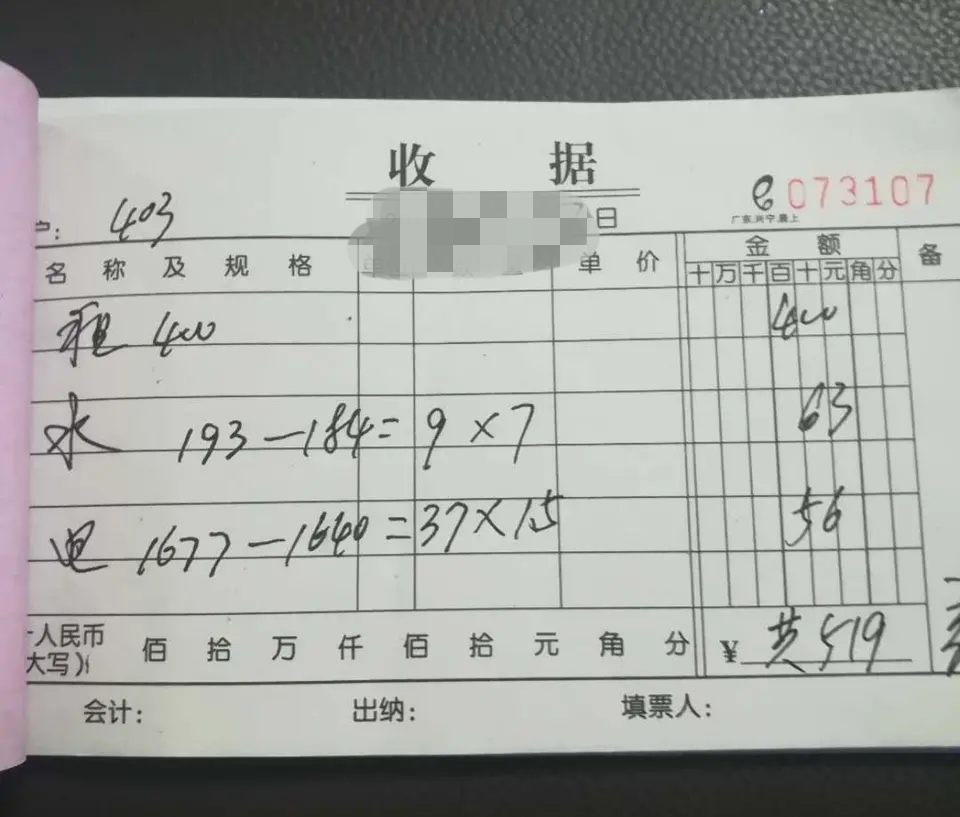 收 据
073107
广东.兴宁.最上
户: 403
日
名 称 及 规 格 单价 金 额 备
十万千百十元角分
租 400 400
水 193-184=9×7 63
电 1677-1640=37×1.5 56
人民币 佰 拾 万 仟 佰 拾 元 角 分 ¥ 共519
大写)
会计: 出纳: 填票人: